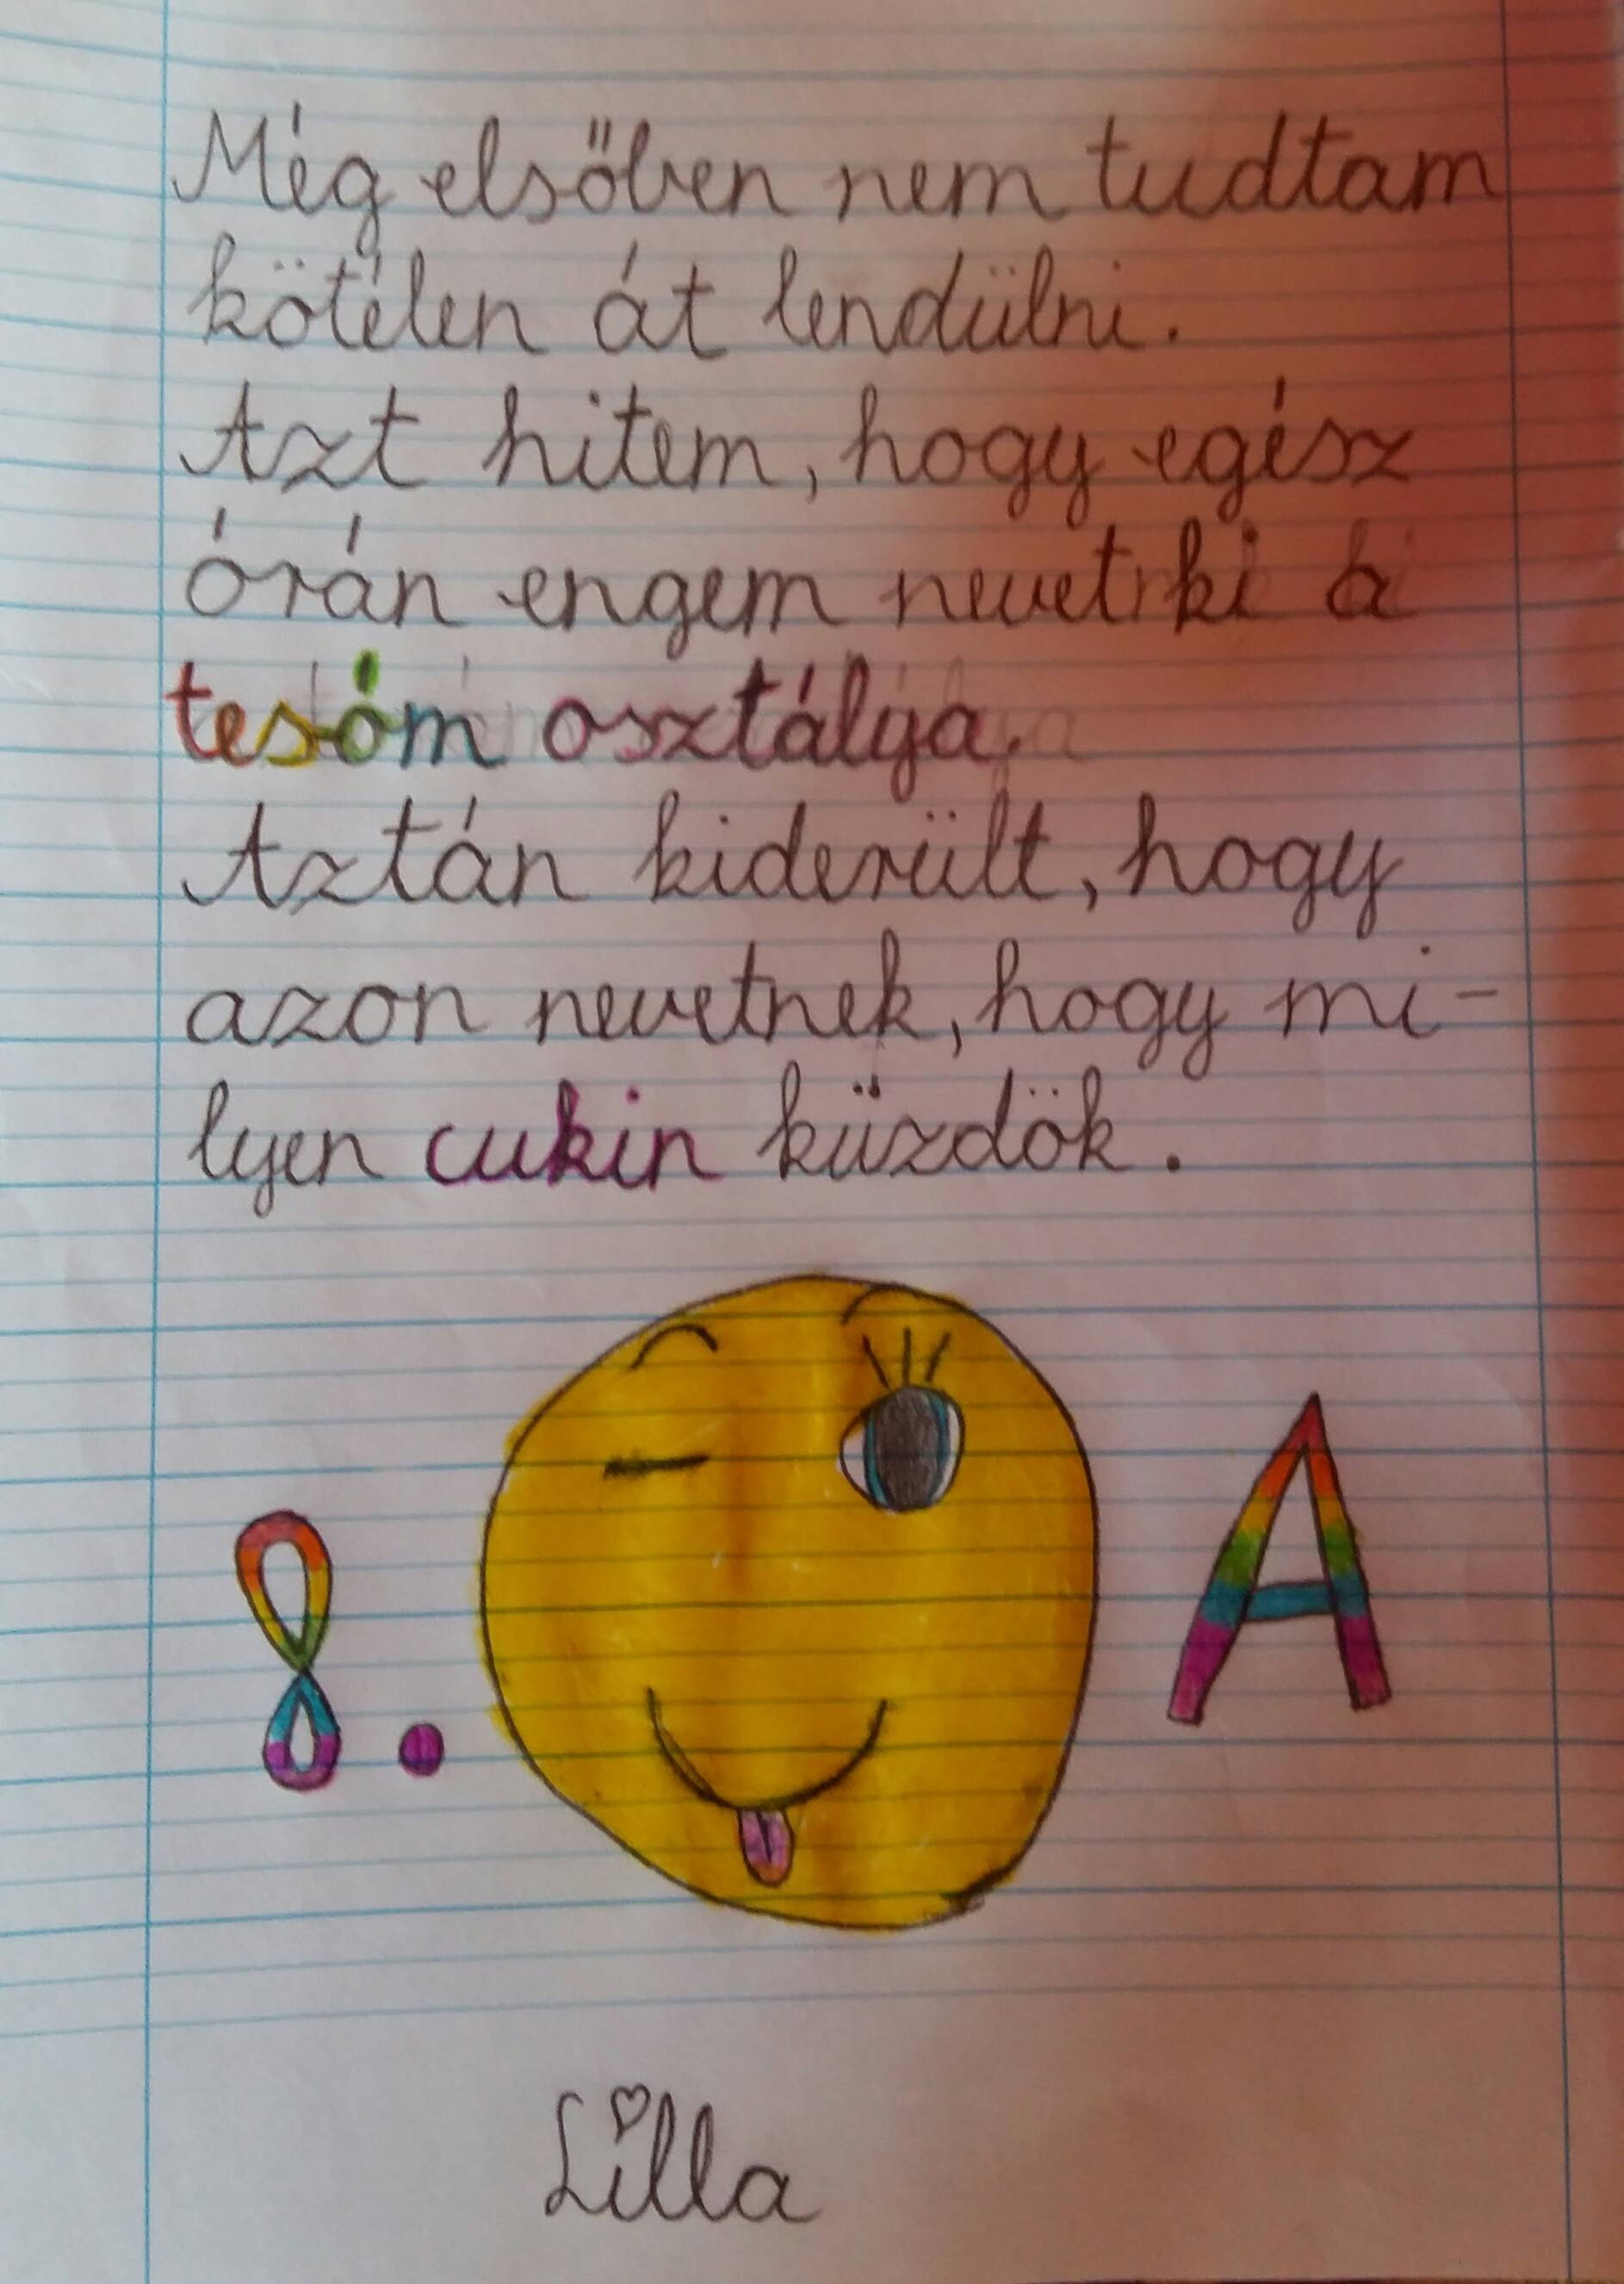 Még elsőben nem tudtam
kötélen át lendülni.
Azt hitem, hogy egész
órán engem nevet ki a
tesóm osztálya.
Aztán kiderült, hogy
azon nevetnek, hogy mi-
lyen cukin küzdök.
8. A
Lilla